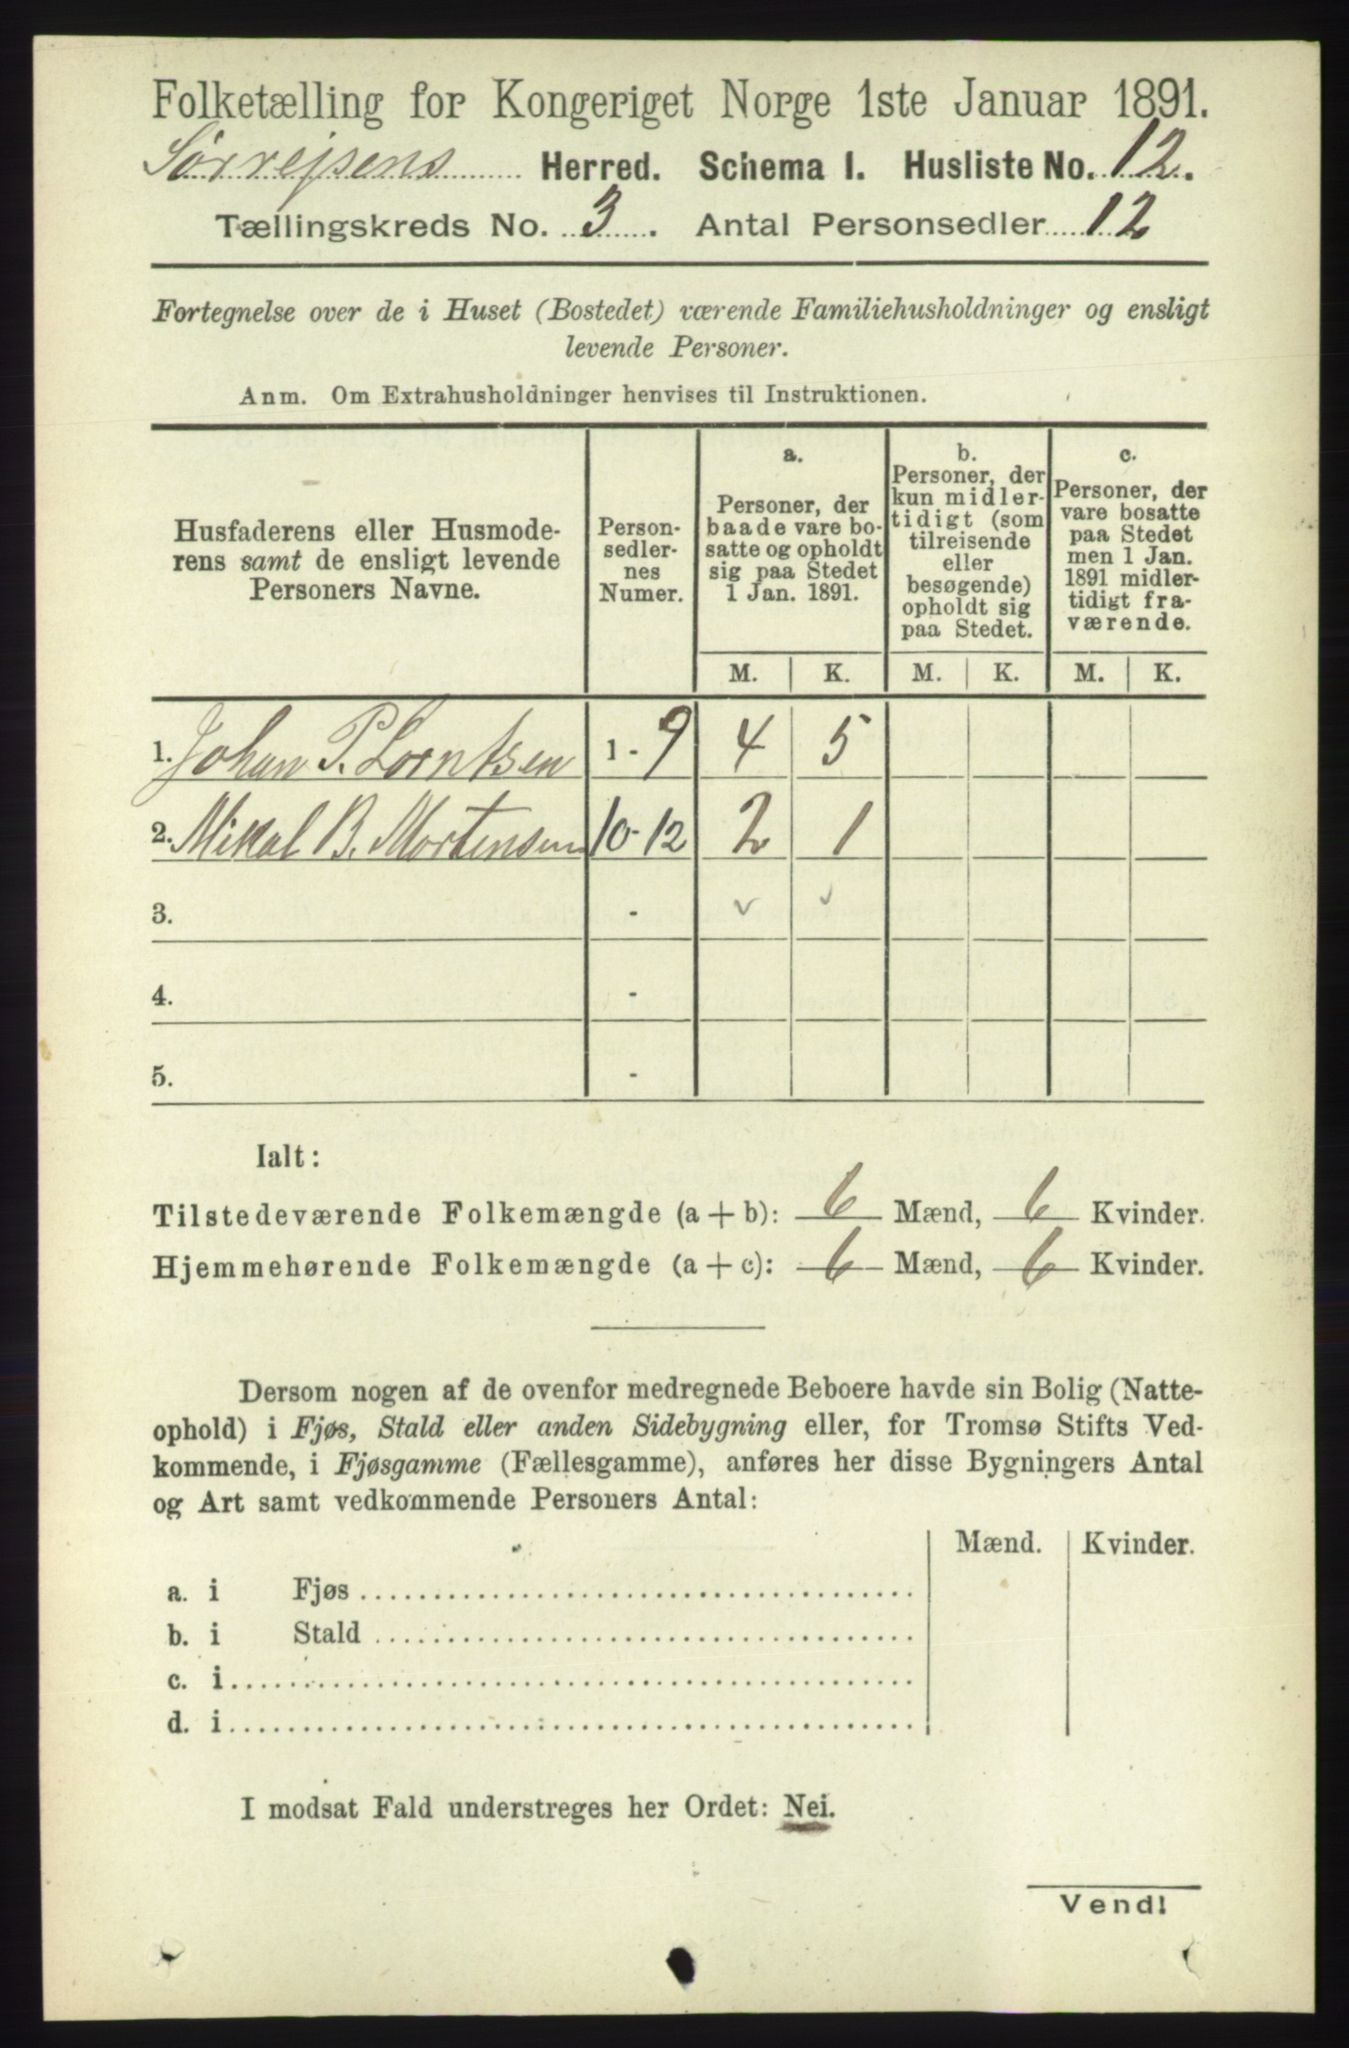 Folketælling for Kongeriget Norge 1ste Januar 1891.
Sørrejsens Herred. Schema I. Husliste No. 12.
Tællingskreds No. 3. Antal Personsedler 12
Fortegnelse over de i Huset (Bostedet) værende Familiehusholdninger og ensligt
levende Personer.
Anm. Om Extrahusholdninger henvises til Instruktionen.
Husfaderens eller Husmode-
rens samt de ensligt levende
Personers Navne.
Person-
sedler-
nes
Numer.
a.
Personer, der
baade vare bo-
satte og opholdt
sig paa Stedet
1 Jan. 1891.
b.
Personer, der
kun midler-
tidigt (som
tilreisende
eller
besøgende)
opholdt sig
paa Stedet.
c.
Personer, der
vare bosatte
paa Stedet
men 1 Jan.
1891 midler-
tidigt fra-
værende.
M. K. M. K. M. K.
1. Johan P. Lorntsen 1 - 9 4 5
2. Mikal B. Mortensen 10-12 2 1
3. -
4. -
5. -
Ialt:
Tilstedeværende Folkemængde (a + b): 6 Mænd, 6 Kvinder.
Hjemmehørende Folkemængde (a + c): 6 Mænd, 6 Kvinder.
Dersom nogen af de ovenfor medregnede Beboere havde sin Bolig (Natte-
ophold) i Fjøs, Stald eller anden Sidebygning eller, for Tromsø Stifts Ved-
kommende, i Fjøsgamme (Fællesgamme), anføres her disse Bygningers Antal
og Art samt vedkommende Personers Antal:
Mænd. Kvinder.
a. i Fjøs
b. i Stald
c. i
d. i
I modsat Fald understreges her Ordet: Nei.
Vend!